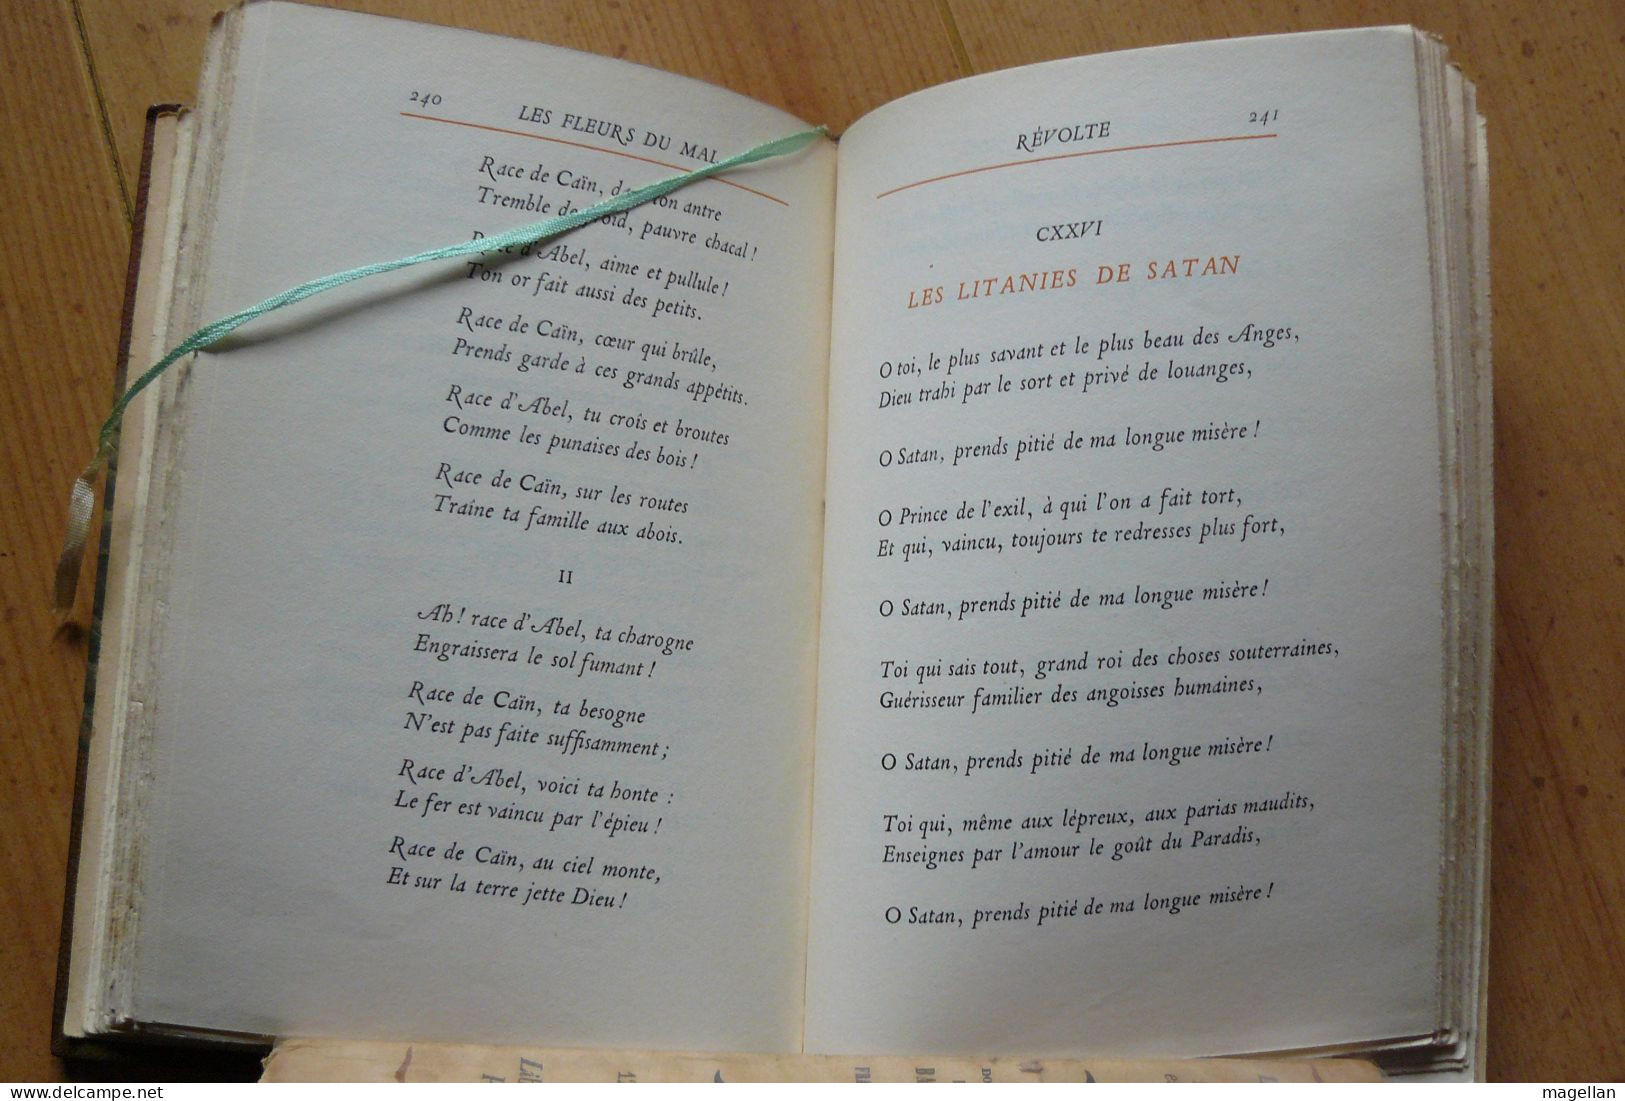 240 LES FLEURS DU MAL
Race de Caïn, ton antre
Tremble de froid, pauvre chacal !
Race d'Abel, aime et pullule !
Ton or fait aussi des petits.
Race de Caïn, cœur qui brûle,
Prends garde à ces grands appétits.
Race d'Abel, tu croîs et broutes
Comme les punaises des bois !
Race de Caïn, sur les routes
Traîne ta famille aux abois.
II
Ah ! race d'Abel, ta charogne
Engraissera le sol fumant !
Race de Caïn, ta besogne
N'est pas faite suffisamment ;
Race d'Abel, voici ta honte :
Le fer est vaincu par l'épieu !
Race de Caïn, au ciel monte,
Et sur la terre jette Dieu !
RÉVOLTE 241
CXXVI
LES LITANIES DE SATAN
O toi, le plus savant et le plus beau des Anges,
Dieu trahi par le sort et privé de louanges,
O Satan, prends pitié de ma longue misère !
O Prince de l'exil, à qui l'on a fait tort,
Et qui, vaincu, toujours te redresses plus fort,
O Satan, prends pitié de ma longue misère !
Toi qui sais tout, grand roi des choses souterraines,
Guérisseur familier des angoisses humaines,
O Satan, prends pitié de ma longue misère !
Toi qui, même aux lépreux, aux parias maudits,
Enseignes par l'amour le goût du Paradis,
O Satan, prends pitié de ma longue misère !
delcampe.net
magellan